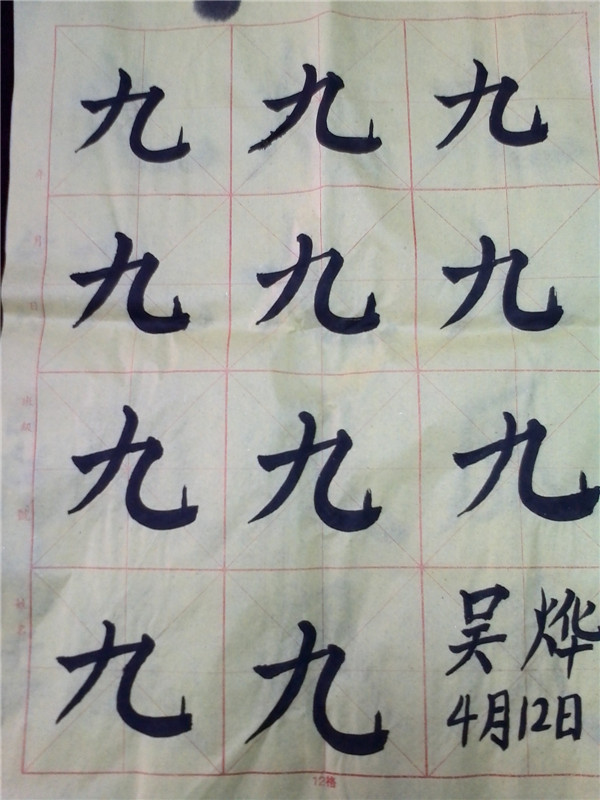 九 九 九
九 九 九
九 九 九
九 九 吴烨
4月12日
12格